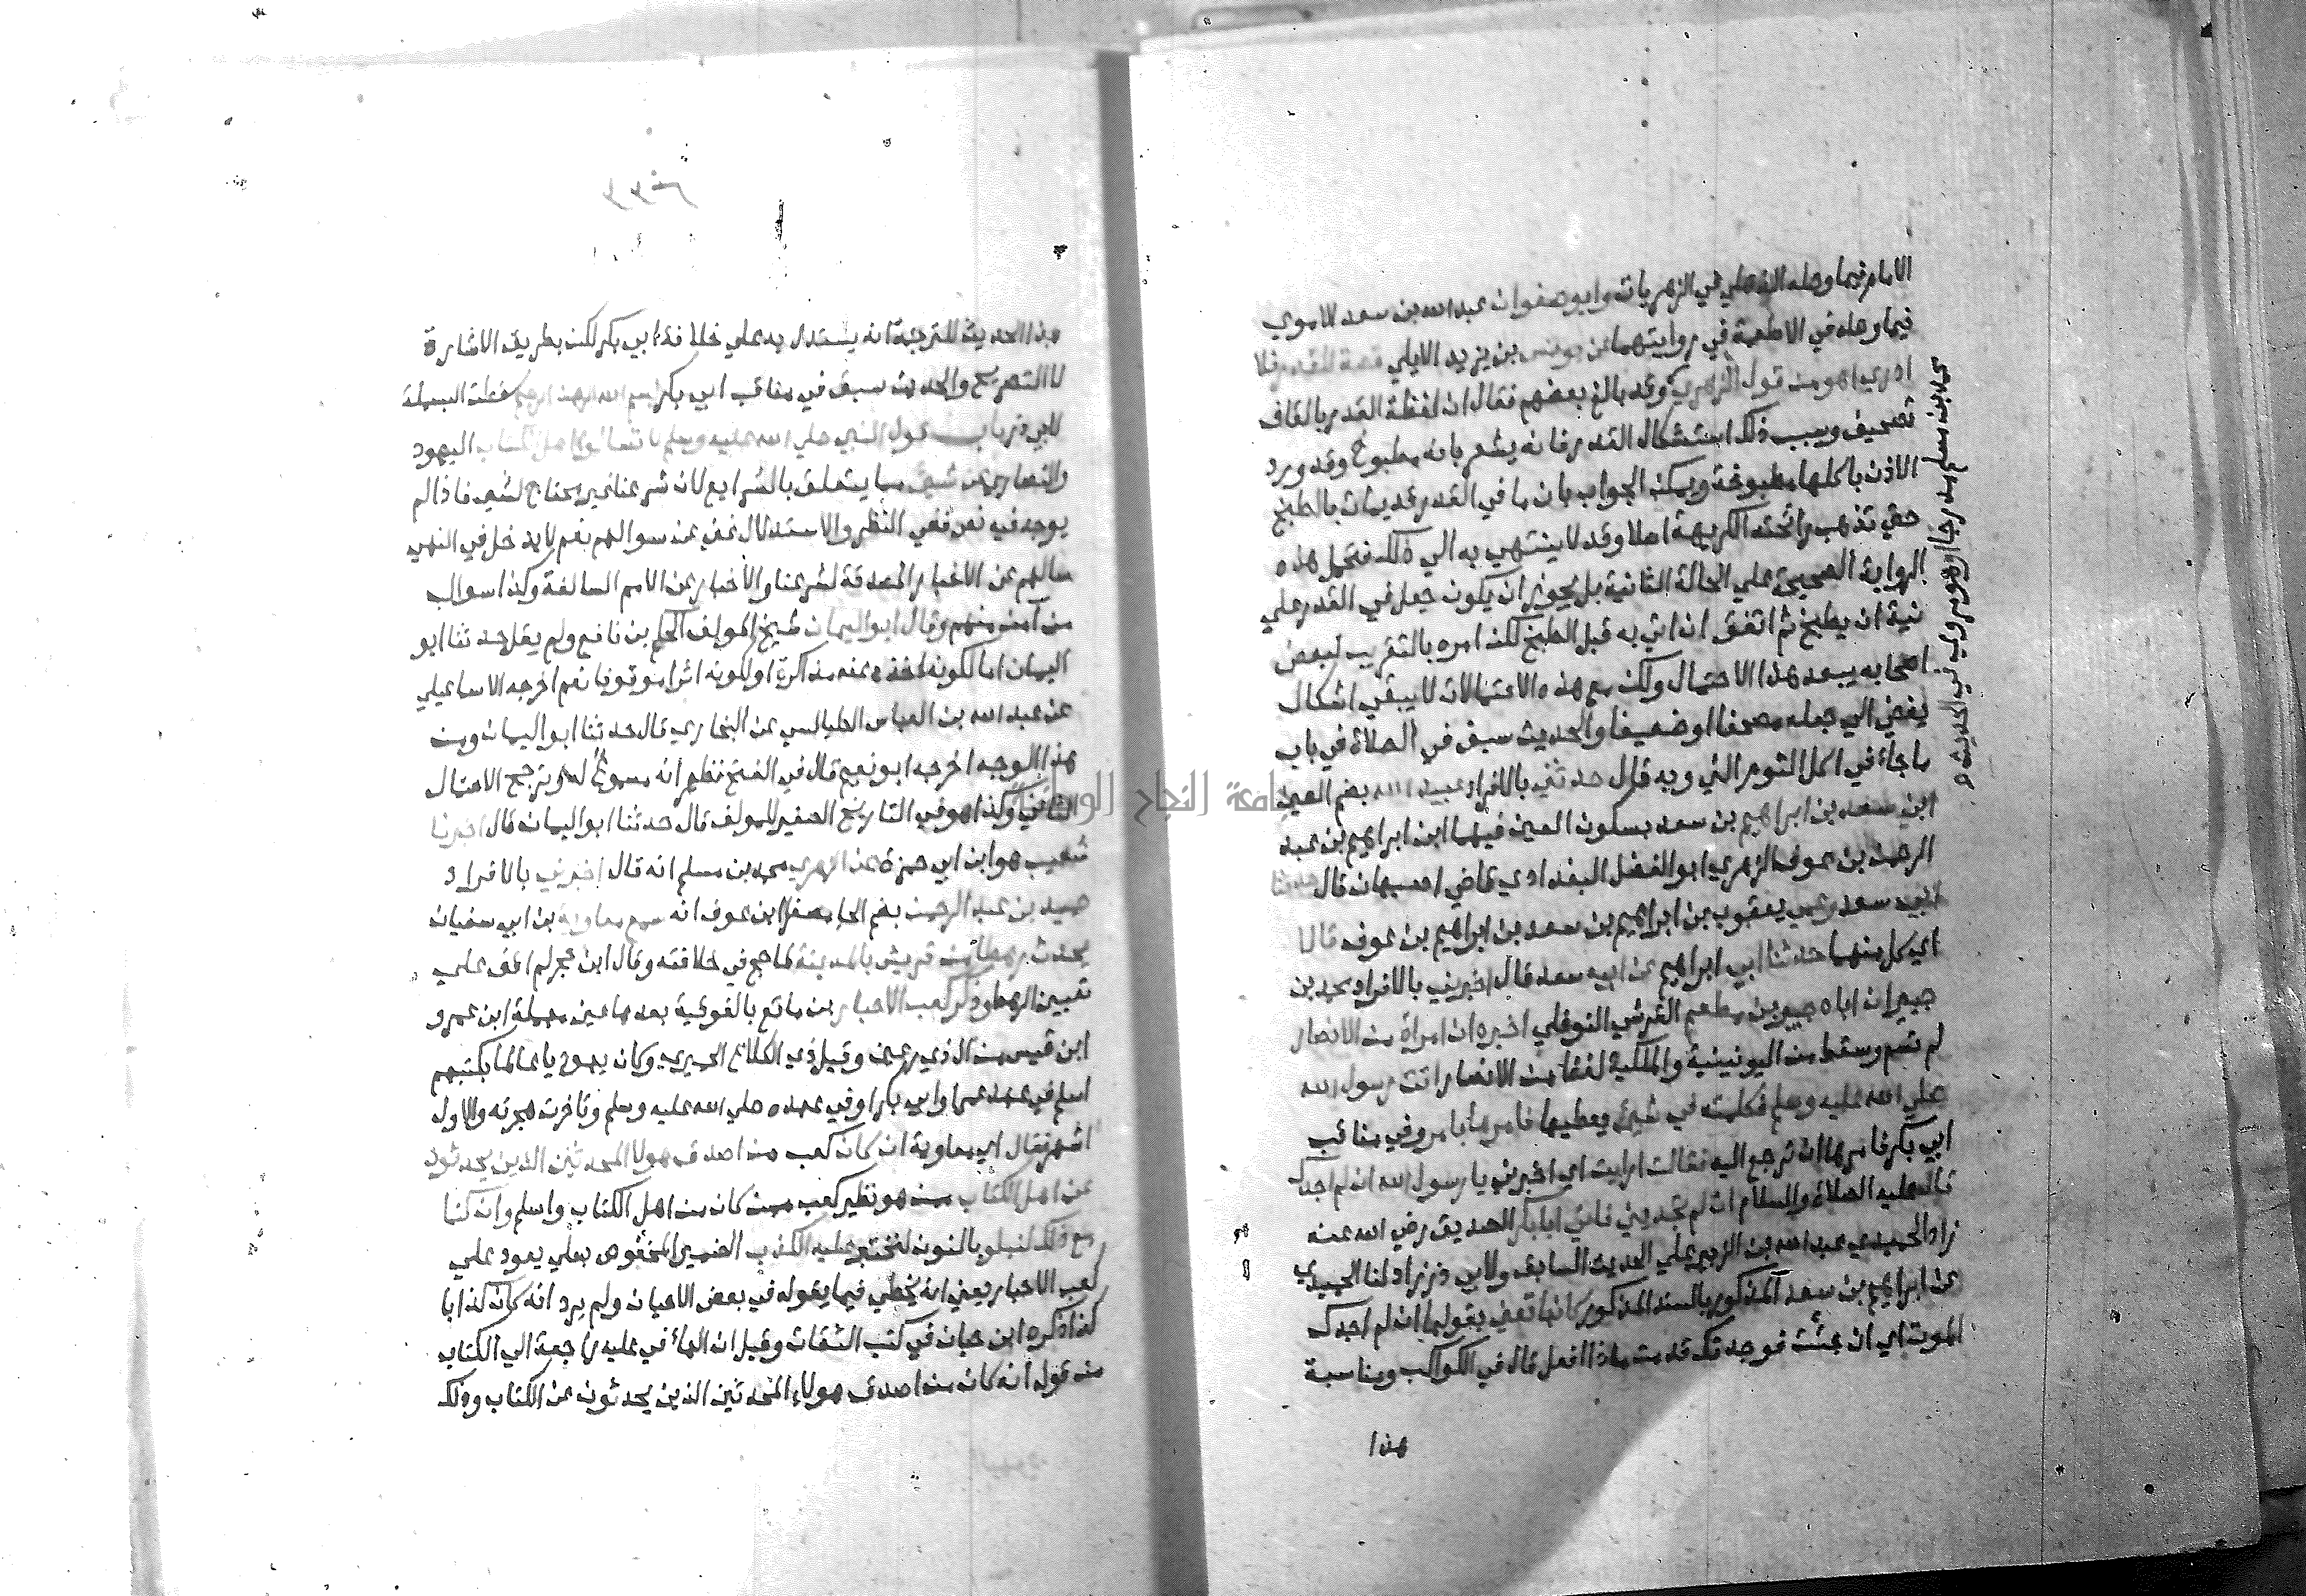 الامام فيما وصله الذهلي في الزهريات وابو صفوان عبد الله بن سعد الاموي
فيما وصله في الاطعمة في روايتهما عن يونس بن يزيد الايلي قصة القدر فلا
ادري اهو من قول الزهري وقد بالغ بعضهم فقال ان لفظة القدر بالقاف
تصحيف وسبب ذلك استشكال القدر فانه يشعر بانه مطبوخ وقد ورد
الاذن باكلها مطبوخة ويمكن الجواب بان ما في القدر قد يمات بالطبخ
حتى تذهب رائحته الكريهة اصلا وقد لا ينتهي به الي ذلك فتحمل هذه
الرواية الصحيحة علي الحالة الثانية بل يجوز ان يكون جعل في القدر علي
نية ان يطبخ ثم اتفق ان اتي به قبل الطبخ لكن امره بالتقريب لبعض
اصحابه يبعد هذا الاحتمال ولكن مع هذه الاحتمالات لا يبقي اشكال
يفضي الي جعله مصحفا او ضعيفا والحديث سبق في الصلاة في باب
ما جاء في اكل الثوم الني وبه قال حدثني بالافراد عبيد الله بضم العين
ابن سعد بن ابراهيم بن سعد بسكون العين فيهما ابن ابراهيم بن عبد
الرحمن بن عوف الزهري ابو الفضل البغدادي قاضي اصبهان قال حدثنا
سعد وعمي يعقوب بن ابراهيم بن سعد بن ابراهيم بن عوف قالا
اي كل منهما حدثنا ابي ابراهيم عن ابيه سعد قال اخبرني بالافراد محمد بن
جبير ان اباه جبير بن مطعم القرشي النوفلي اخبره ان امراة من الانصار
لم تسم وسقط من اليونينية والملكية لفظ من الانصار اتت رسول الله
صلي الله عليه وسلم فكلمته في شيء يعطيها فامرها بامر وفي مناقب
ابي بكر فامرها ان ترجع اليه فقالت ارايت اي اخبرني يا رسول الله ان لم اجدك
قال عليه الصلاة والسلام ان لم تجديني فاتي ابا بكر الصديق رضي الله عنه
زاد الحميدي عبد الله بن الزبير علي الحديث السابق ولابي ذر زاد لنا الحميدي
عن ابراهيم بن سعد المذكور بالسند المذكور كانها تعني بقولها ان لم اجدك
الموت اي ان جئت فوجدتك قد مت ماذا افعل قال في الكواكب ومناسبة
هذا
هذا الحديث للترجمة انه يستدل به علي خلافة ابي بكر لكن بطريق الاشارة
لا التصريح والحديث سبق في مناقب ابي بكر بسم الله الرحمن الرحيم سقطت البسملة
لابي ذر باب قول النبي صلي الله عليه وسلم لا تسألوا اهل الكتاب اليهود
والنصاري عن شيء مما يتعلق بالشرايع لان شرعنا غير محتاج لشيء فاذا لم
يوجد فيه نص ففي النظر والاستدلال غني عن سوالهم نعم لا يدخل في النهي
سالهم عن الاخبار المصدقة لشرعنا والاخبار عن الامم السالفة وكذا سوال
من آمن منهم وقال ابو اليمان شيخ المولف الحكم بن نافع ولم يقل حدثنا ابو
اليمان اما لكونه اخذه عنه مذاكرة او لكونه اثرا موقوفا نعم اخرجه الاسماعيلي
عن عبد الله بن العباس الطيالسي عن البخاري قال حدثنا ابو اليمان ومن
هذا الوجه اخرجه ابو نعيم قال في الفتح فظهر انه مسموع له وترجح الاحتمال
الثاني وكذا هو في التاريخ الصغير للمولف قال حدثنا ابو اليمان قال اخبرنا
شعيب هو ابن ابي حمزة عن الزهري محمد بن مسلم انه قال اخبرني بالافراد
حميد بن عبد الرحمن بضم الحا مصغرا ابن عوف انه سمع معاوية بن ابي سفيان
يحدث رهطا من قريش بالمدينة لما حج في خلافته وقال ابن حجر لم اقف علي
تعيين الرهط وذكر كعب الاحبار بن ماتع بالفوقية بعدها عين مهملة ابن عمرو
ابن قيس من ال ذي رعين وقيل ذي الكلاع الحميري وكان يهوديا عالما بكتبهم
اسلم في عهد عمر او ابي بكر او في عهده صلي الله عليه وسلم وتاخرت هجرته والاول
اشهر فقال اي معاوية ان كان كعب من اصدق هولا المحدثين الذين يحدثون
عن اهل الكتاب ممن هو نظير كعب ممن كان من اهل الكتاب واسلم وان كنا
مع ذلك لنبلو بالنون لنختبر عليه الكذب الضمير المخفوض بعلي يعود علي
كعب الاحبار يعني انه يخطي فيما يقوله في بعض الاحيان ولم يرد انه كان كذابا
كذا ذكره ابن حبان في كتب الثقات وقيل ان الهاء في عليه راجعة الي الكتاب
من قوله انه كان من اصدق هولاء المحدثين الذين يحدثون عن الكتاب وذلك